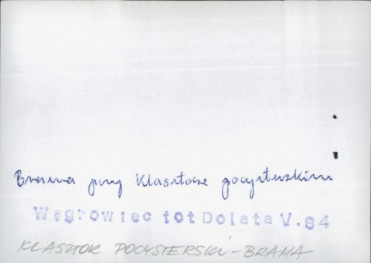 Brama przy Klasztorze pocysterskim
Wągrowiec fot Dolata V.84
KLASZTOR POCYSTERSKI - BRAMA